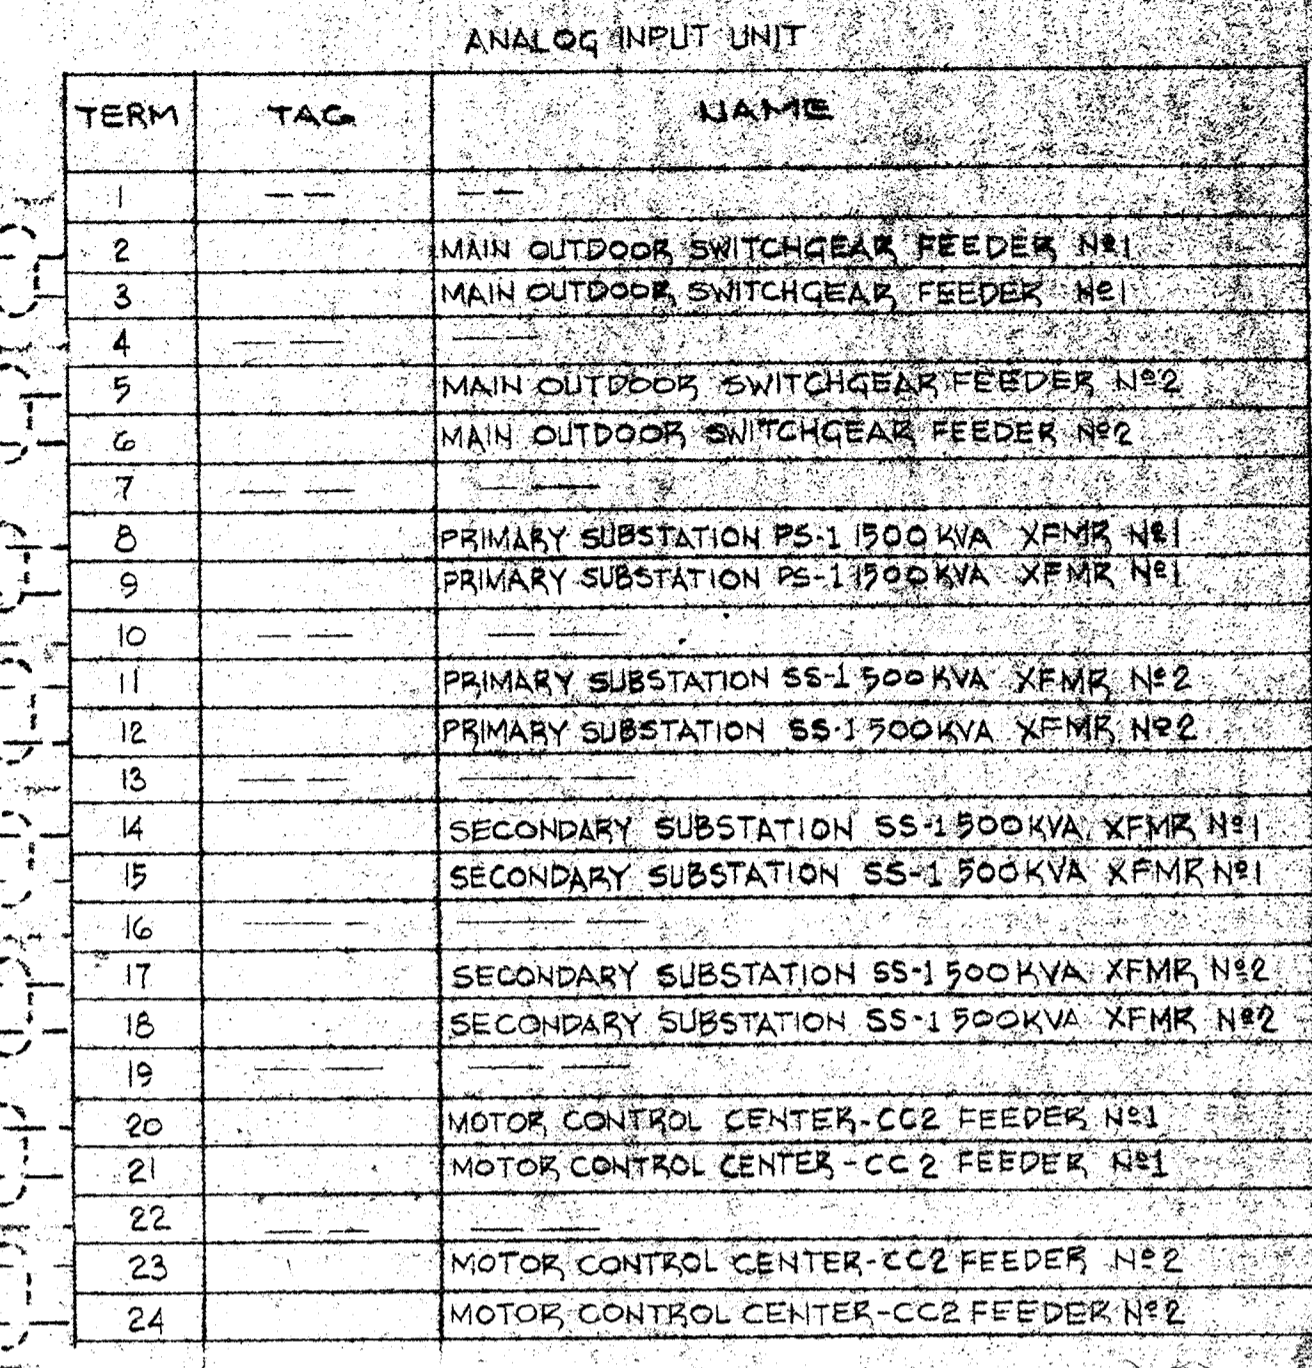 ANALOG INPUT UNIT
TERM TAG NAME
1 — — — —
2 MAIN OUTDOOR SWITCHGEAR FEEDER Nº1
3 MAIN OUTDOOR SWITCHGEAR FEEDER Nº1
4 — — — —
5 MAIN OUTDOOR SWITCHGEAR FEEDER Nº2
6 MAIN OUTDOOR SWITCHGEAR FEEDER Nº2
7 — — — —
8 PRIMARY SUBSTATION PS-1 1500 KVA XFMR Nº1
9 PRIMARY SUBSTATION PS-1 1500 KVA XFMR Nº1
10 — — — —
11 PRIMARY SUBSTATION SS-1 500 KVA XFMR Nº2
12 PRIMARY SUBSTATION SS-1 500 KVA XFMR Nº2
13 — — — —
14 SECONDARY SUBSTATION SS-1 500 KVA XFMR Nº1
15 SECONDARY SUBSTATION SS-1 500 KVA XFMR Nº1
16 — — — —
17 SECONDARY SUBSTATION SS-1 500 KVA XFMR Nº2
18 SECONDARY SUBSTATION SS-1 500 KVA XFMR Nº2
19 — — — —
20 MOTOR CONTROL CENTER-CC2 FEEDER Nº1
21 MOTOR CONTROL CENTER-CC2 FEEDER Nº1
22 — — — —
23 MOTOR CONTROL CENTER-CC2 FEEDER Nº2
24 MOTOR CONTROL CENTER-CC2 FEEDER Nº2